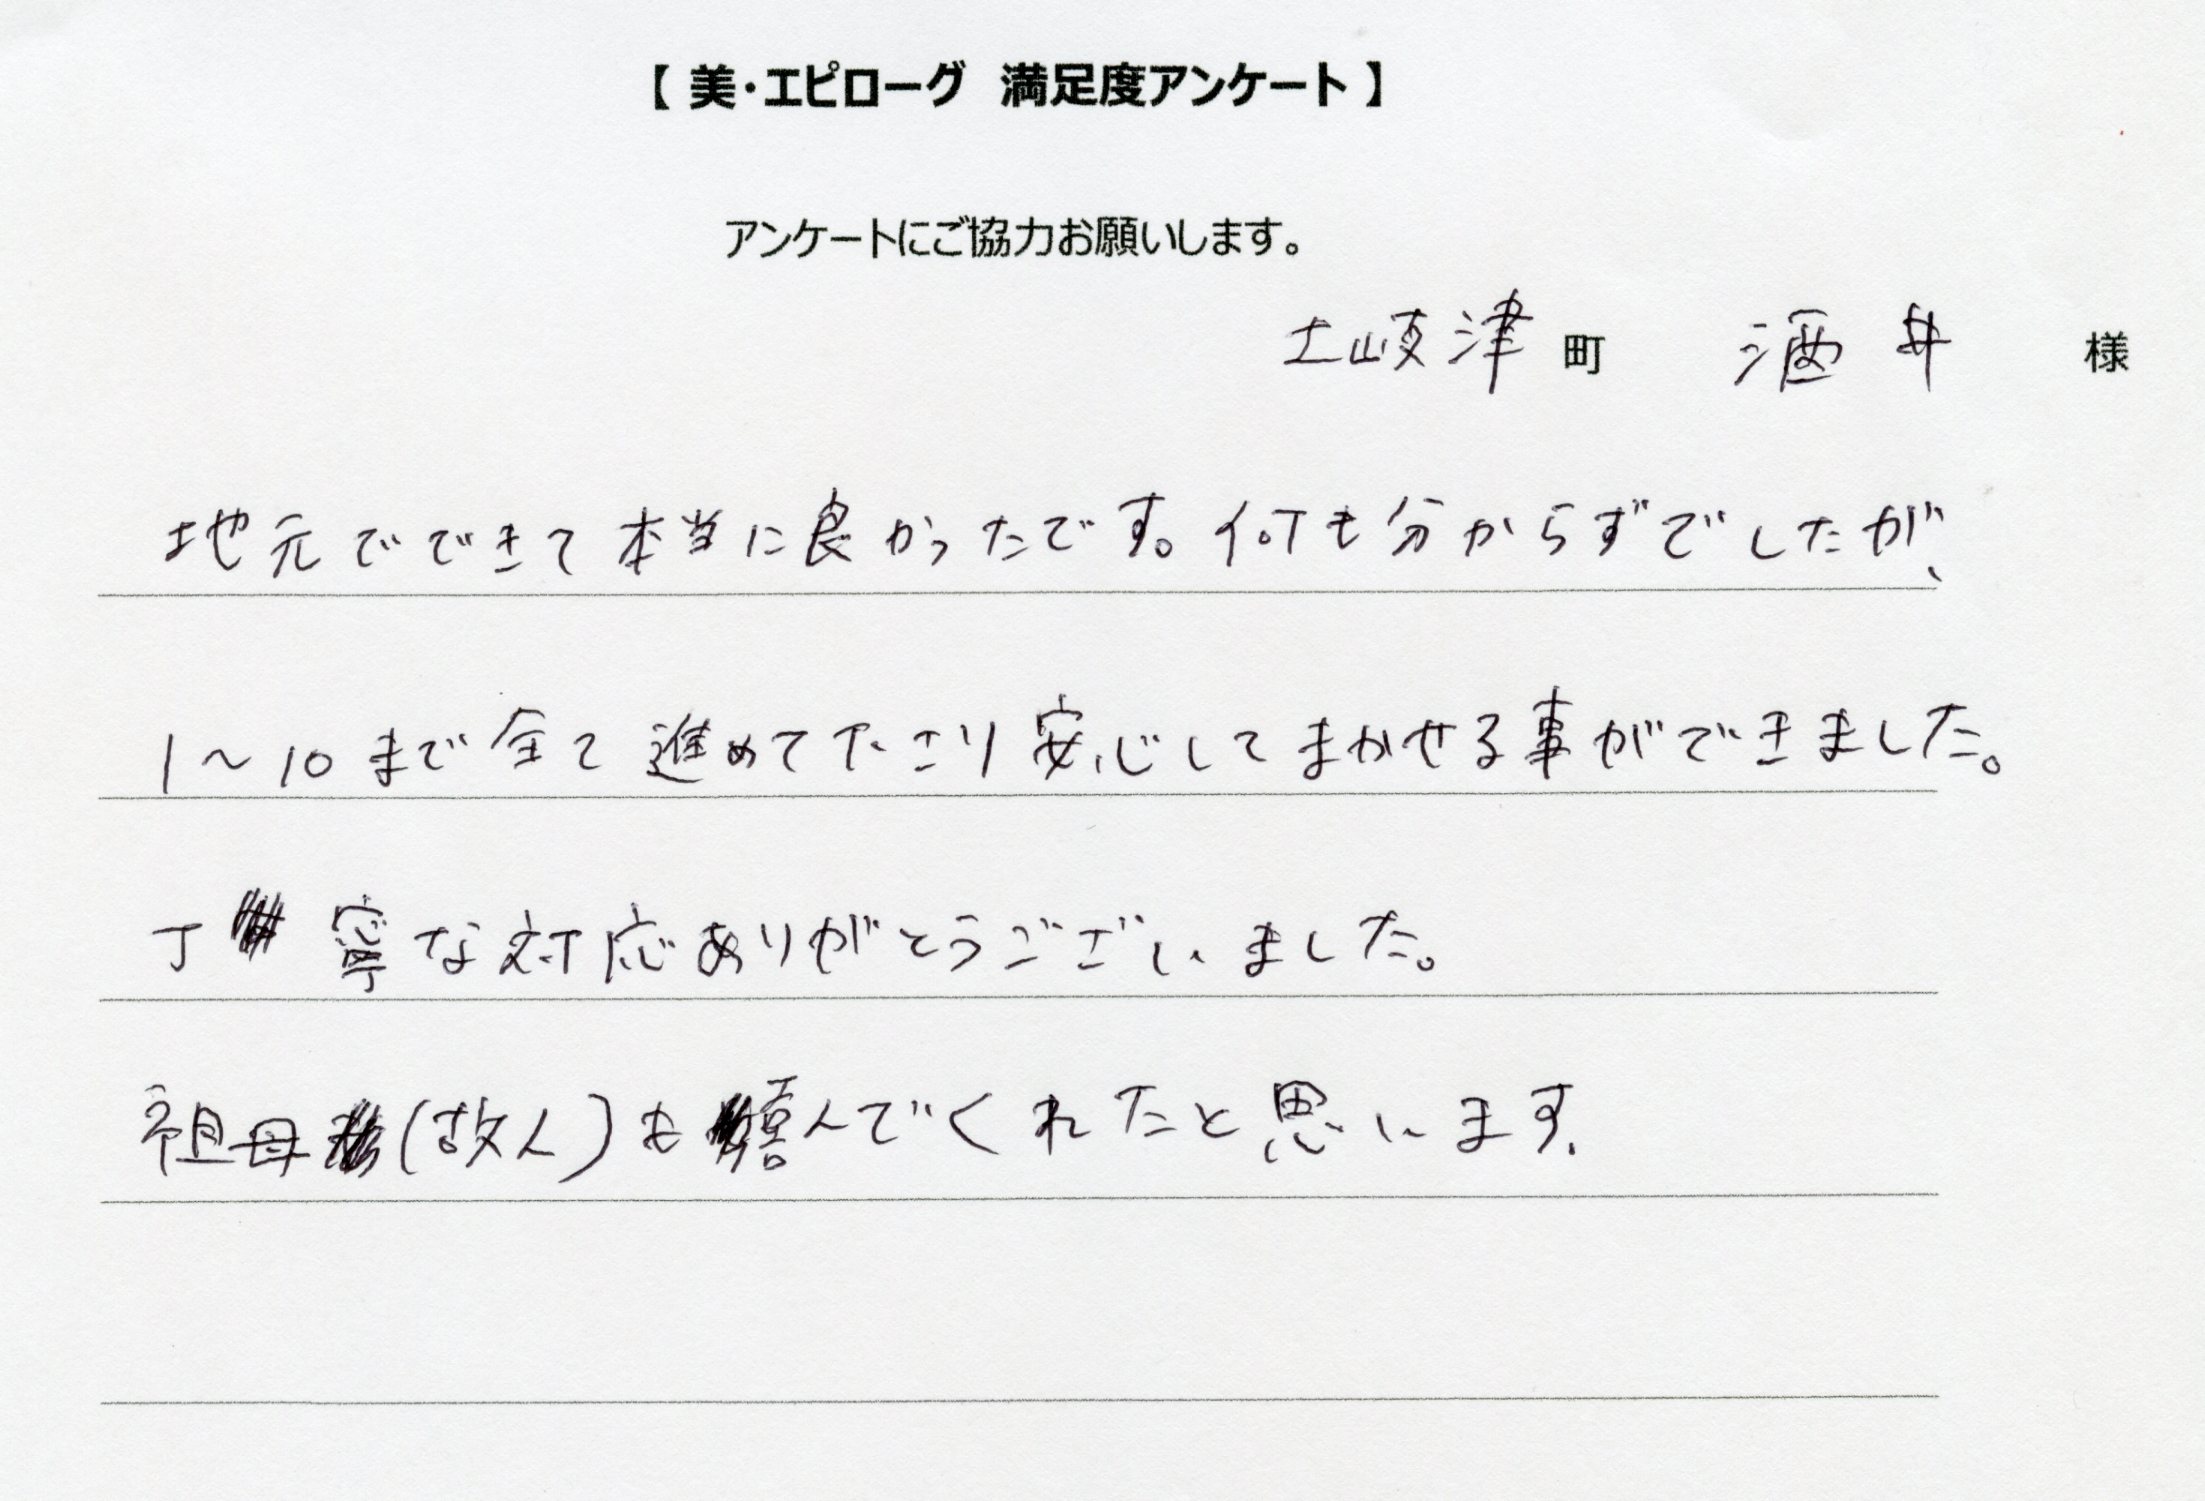 【 美・エピローグ 満足度アンケート 】
アンケートにご協力お願いします。
土岐津町 酒井 様
地元でできて本当に良かったです。何も分からずでしたが、
1～10まで全て進めて下さり安心してまかせる事ができました。
丁寧な対応ありがとうございました。
祖母(故人)も喜んでくれたと思います。